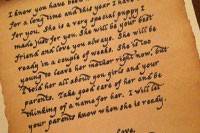 I know you have been
for a long time and this year I have
for you. She is a very special puppy I
made just for you. She will be your best
friend and love you always. She will be
ready in a couple of weeks. She is too
young to leave her mother right now, but
I told her all about you girls and your
parents. Take good care of her and be
thinking of a name for her. I will let
your parents know when she is ready.
Love,